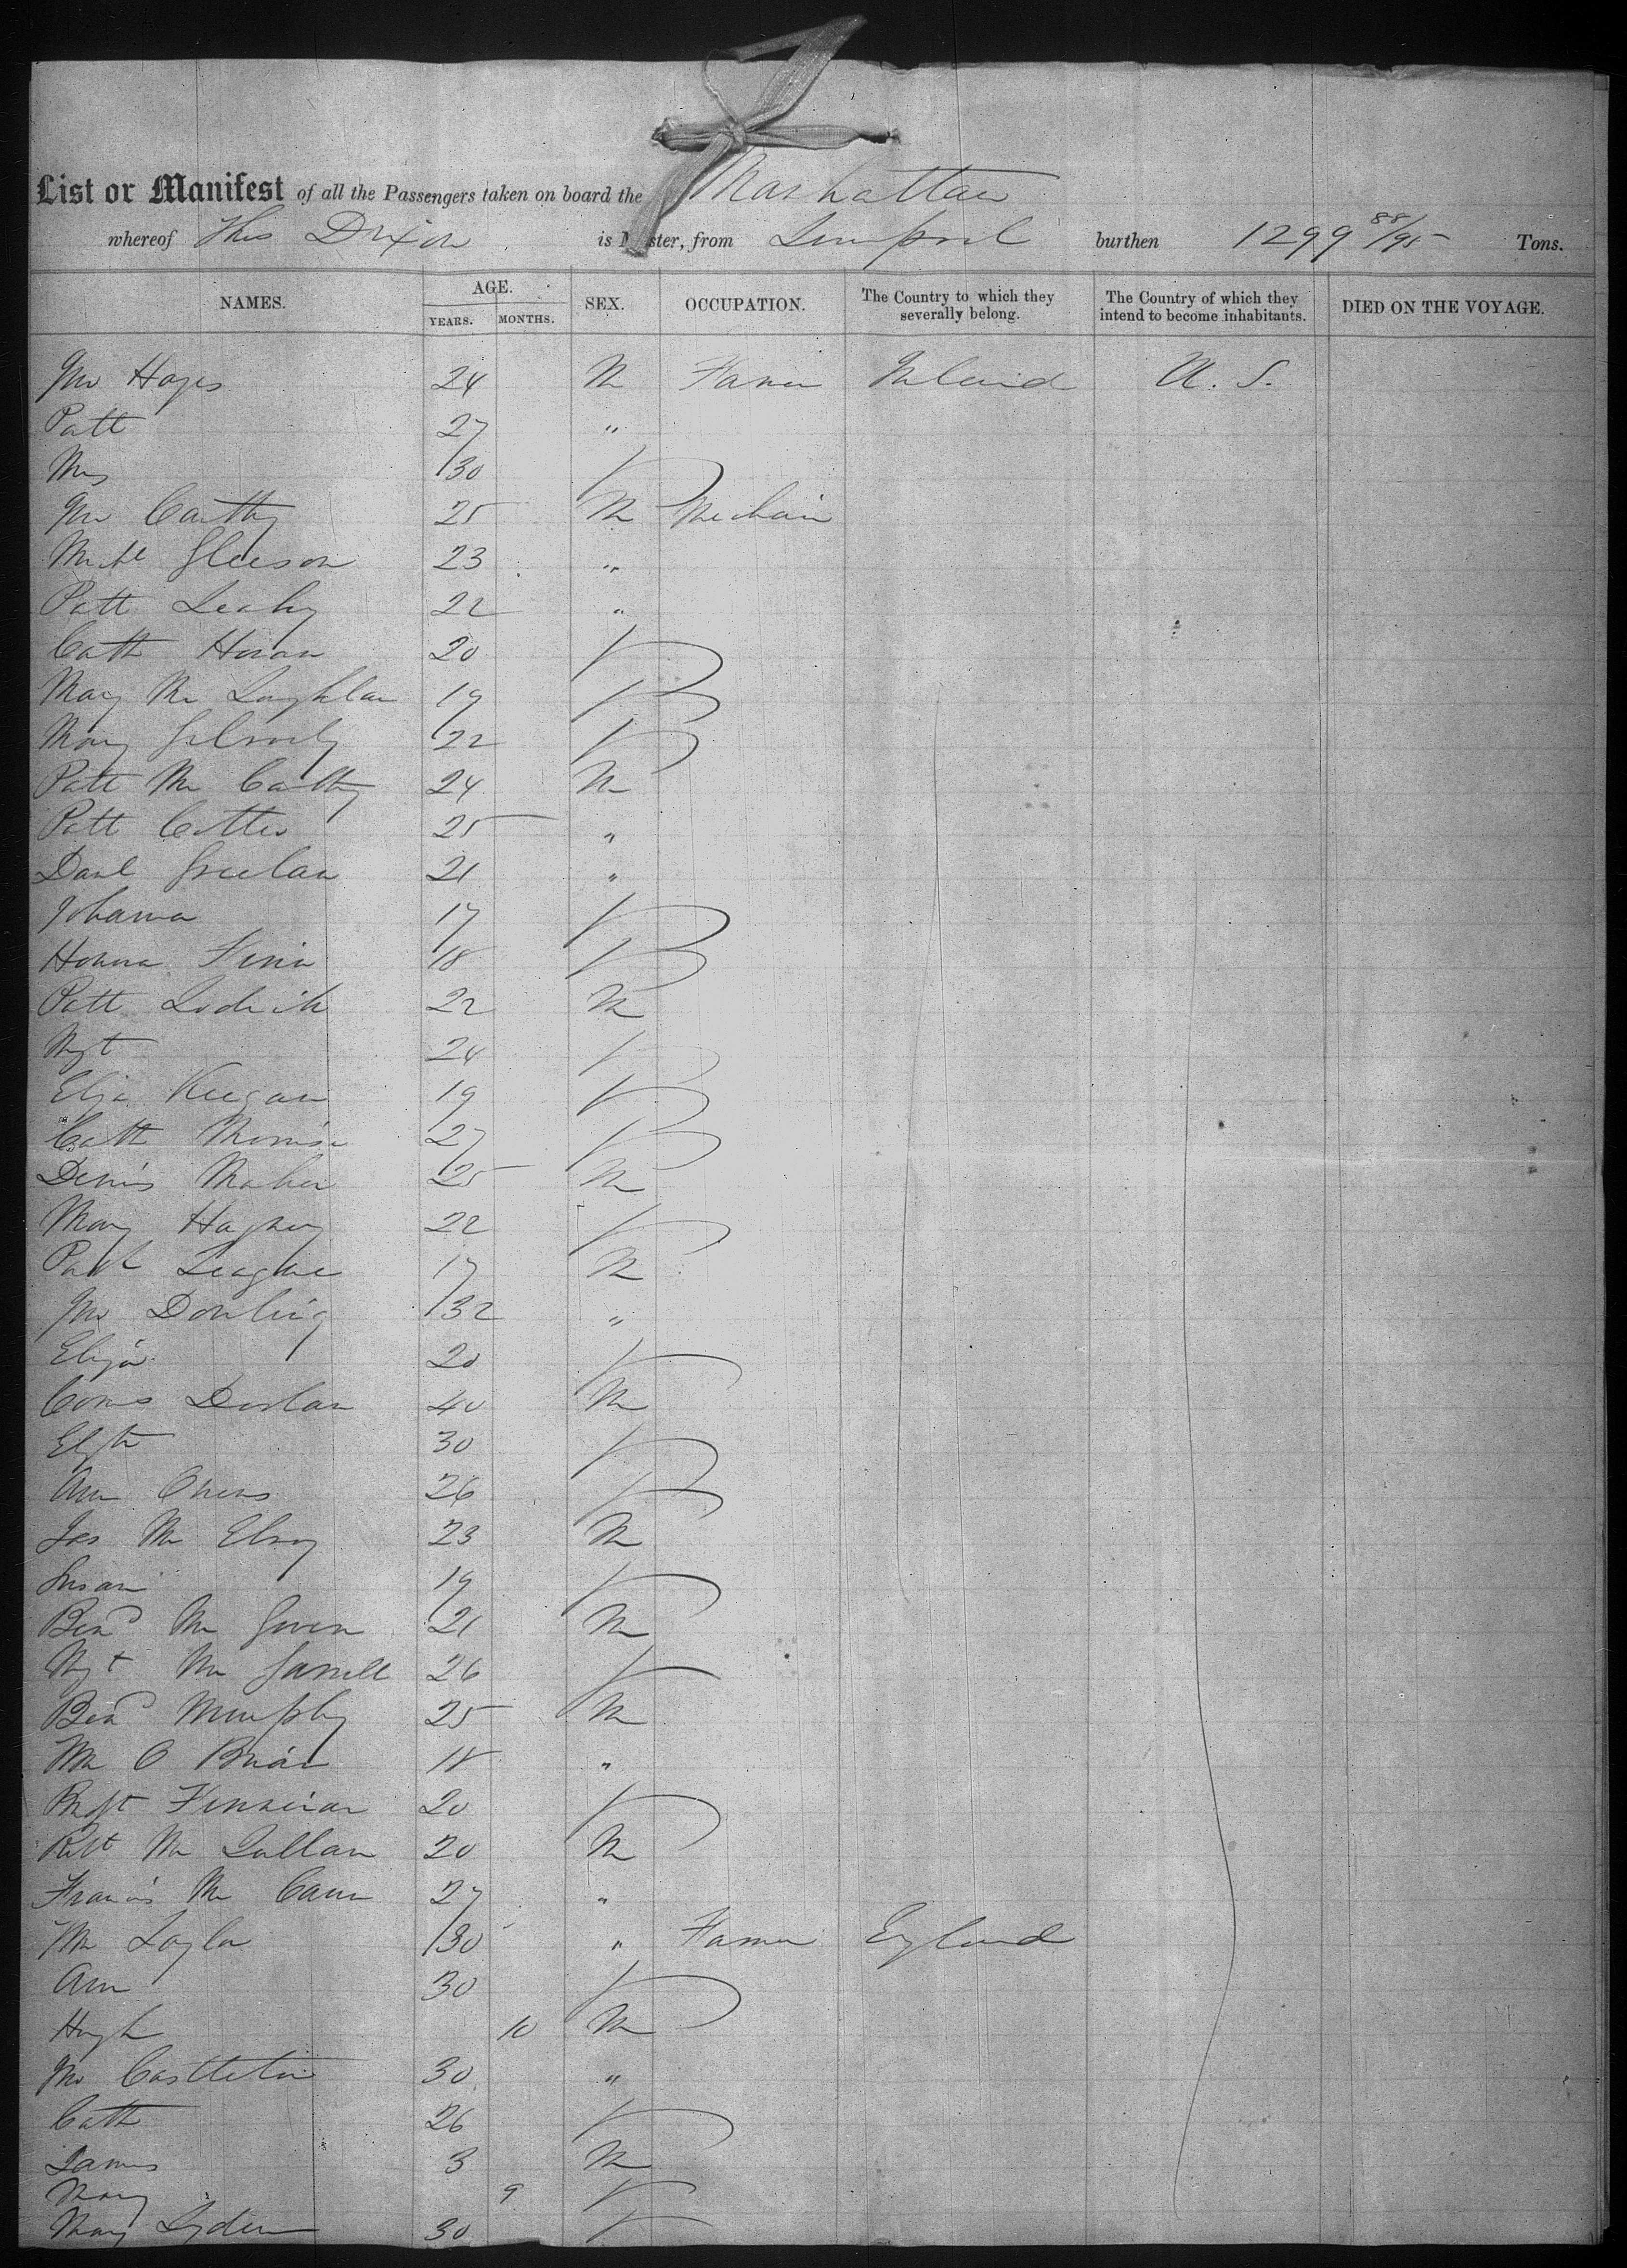 List or Manifest of all the Passengers taken on board the Manhattan
whereof Thos Dixon is Master, from Liverpool burthen 1299 88/95 Tons.
NAMES. AGE. YEARS. MONTHS. SEX. OCCUPATION. The Country to which they severally belong. The Country of which they intend to become inhabitants. DIED ON THE VOYAGE.
Jno Hayes 24 M Farmer Ireland U. S.
Patt 27 "
Mrs 30
Jno Carthy 25 M Mechanic
Michl Gleeson 23 "
Patt Leahy 22 "
Cath Horan 20
Mary Mc Laughlan 19
Mary 22
Patt Mc Carthy 24 M
Patt Cotter 25 "
Danl 21 "
Johanna 17
Honna 18
Patt 22 M
Mgt 24
Eliza Keegan 19
Cath 27
Denis Maher 25 M
Mary 22
Patk League 17 M
Jno Dowling 32 "
Eliza 20
Corns 40 M
Elizth 30
Ann Owens 26
Jas Mc Elroy 23 M
Susan 19
Bern Mc Govern 21 M
Mgt Mc 26
Bern Murphy 25 M
Wm O Brien 18 "
Bridgt 20
Robt Mc 20 M
Francis Mc Cann 27 "
Wm Taylor 30 " Farmer England
Ann 30
Hugh 10 M
Jno Castleton 30 "
Cath 26
James 3 M
Mary 9
Mary 30